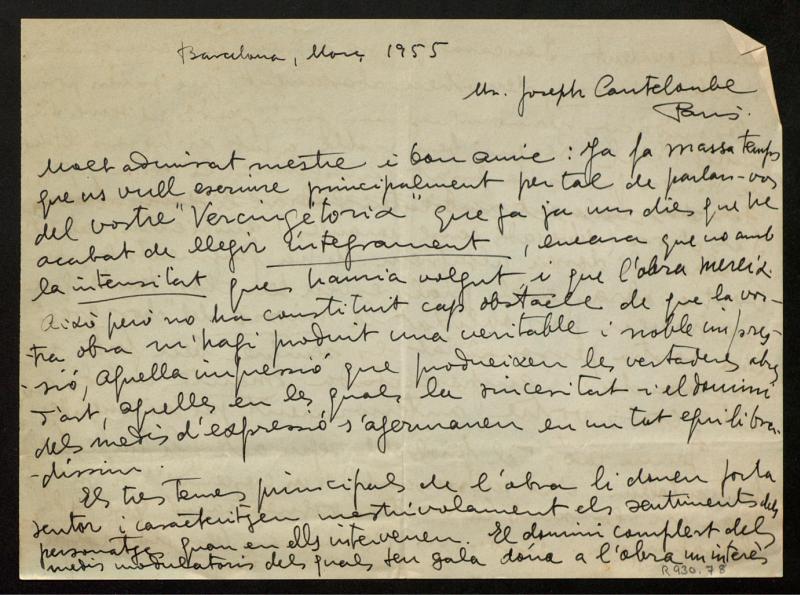 Barcelona, Març 1955
Mr. Joseph Canteloube
Paris.
Molt admirat mestre i bon amic: Ja fa massa temps
que us vull escriure principalment per tal de parlar-vos
del vostre "Vercingétorix" que fa ja uns dies que he
acabat de llegir íntegrament, encara que no amb
la intensitat que hauria volgut i que l'obra mereix.
Això però no ha constituit cap obstacle de que la vos-
-tra obra m'hagi produit una veritable i noble impres-
-sió, aquella impressió que produeixen les vertaderes obres
d'art, aquelles en les quals la sinceritat i el domini
dels medis d'expressió s'agermanen en un tot equilibra-
-díssim.
Els tres temes principals de l'obra li donen forta
sentor i caracteritzen mestrívolament els sentiments dels
personatges quan en ells intervenen. El domini complert dels
medis modulatoris dels quals feu gala dona a l'obra un interès
R 930.78